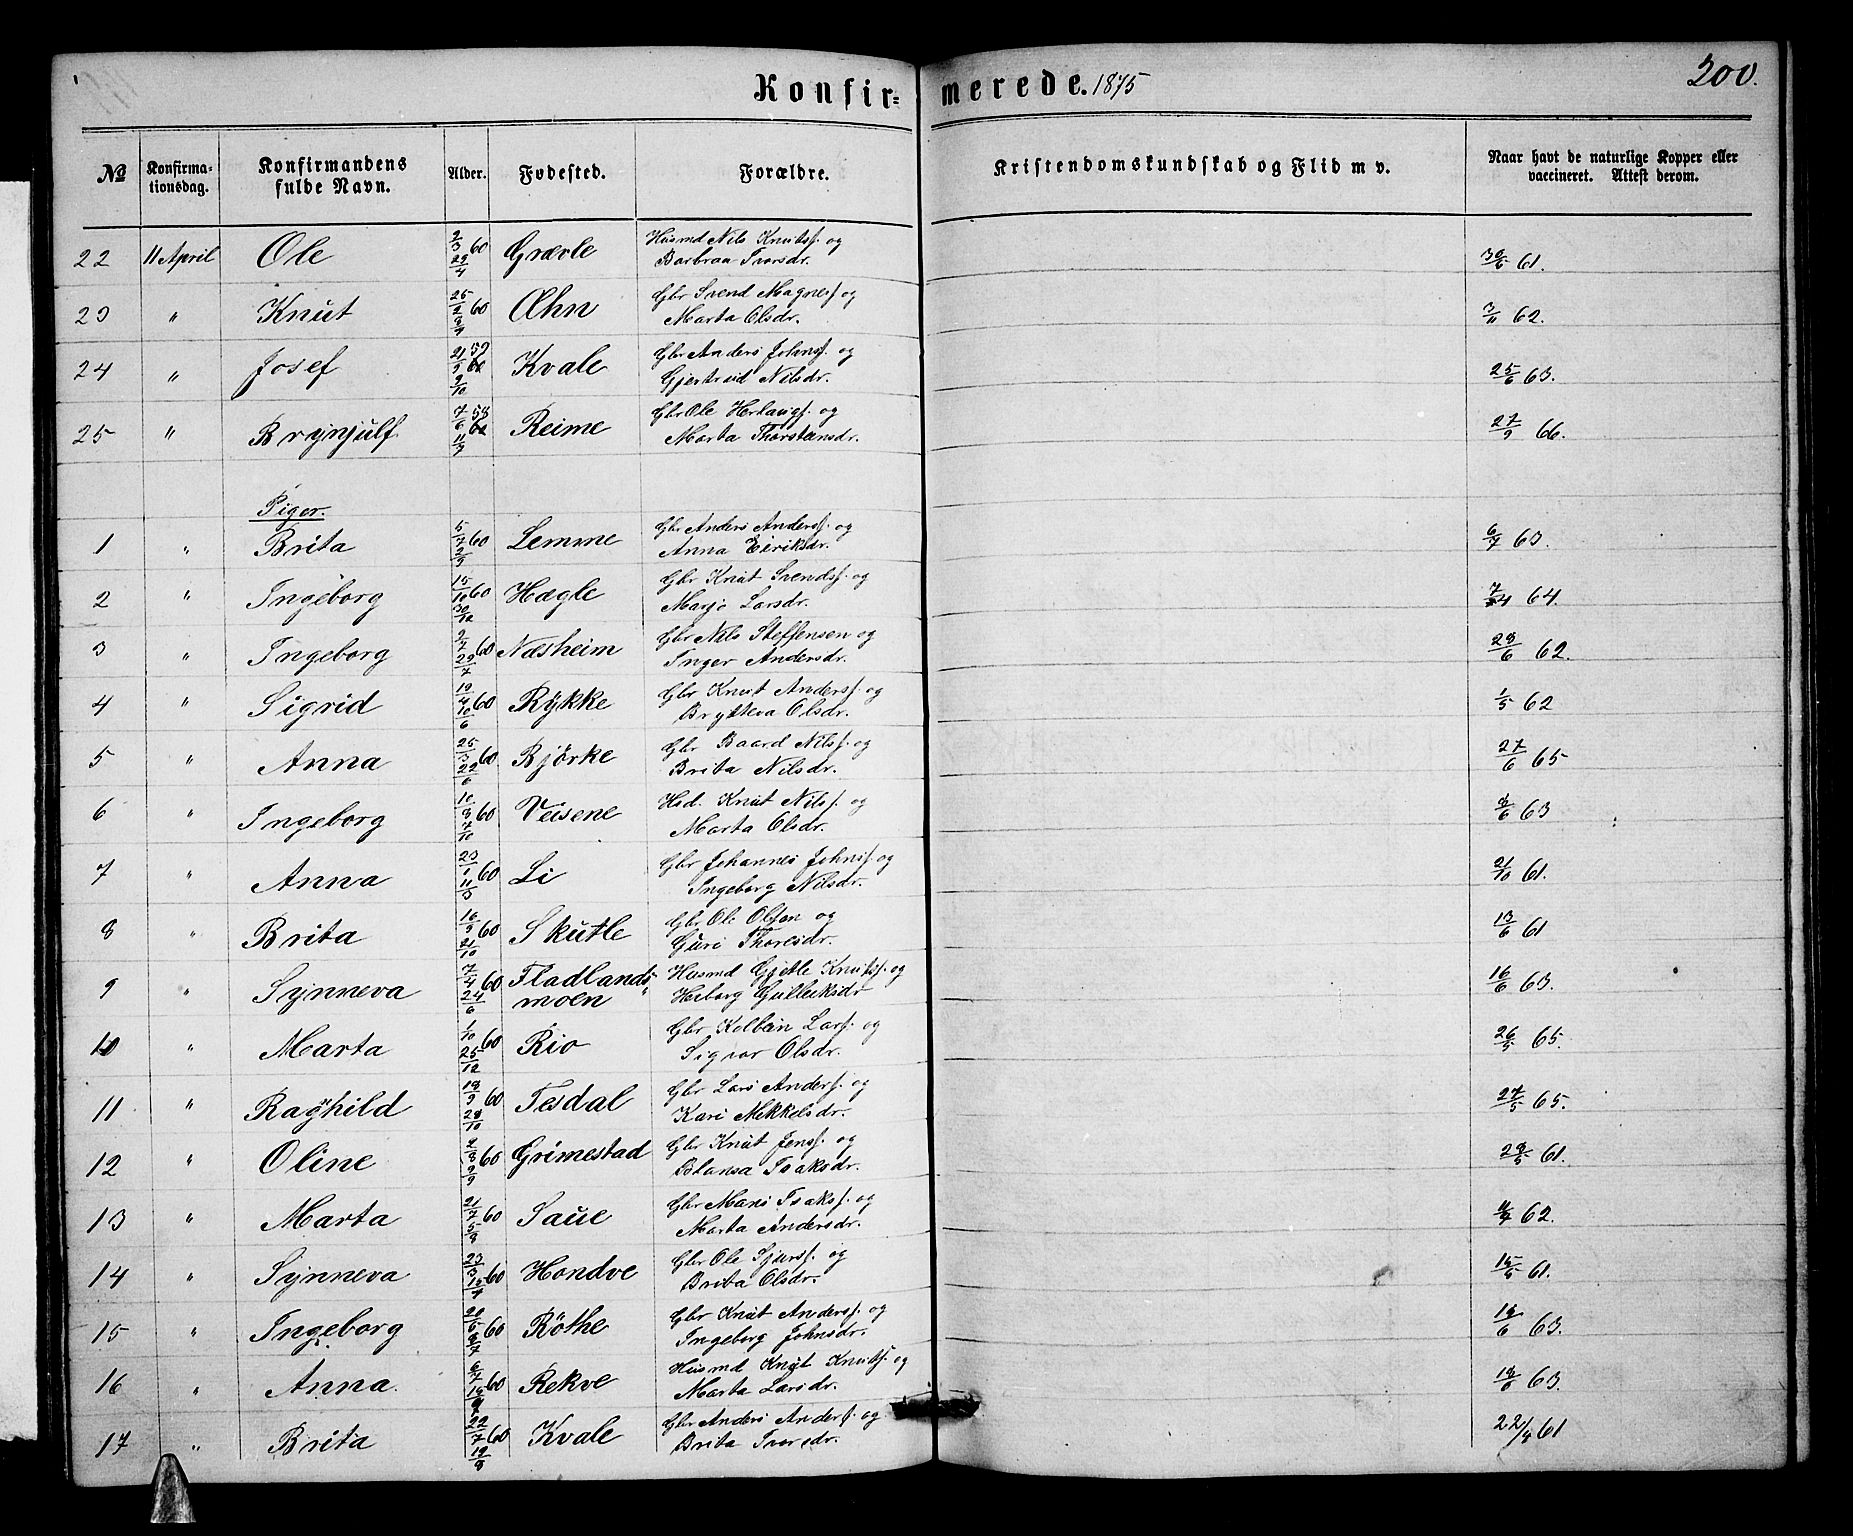 Konfir= merede. 1875 200.
№ Konfirma-tionsdag. Konfirmandens fulde Navn. Alder. Fødested. Forældre. Kristendomskundskab og Flid m v. Naar havt de naturlige Kopper eller vaccineret. Attest derom.
22 11 April Ole 2/3 60 29/4 Grævle Husmd Nils Knutsf. og Barbraa Ivarsdr. 30/6 61.
23 " Knut 60 Æhn Gbr Svend Magnesf og Marta Olsdr. 3/11 62.
24 " Josef 21/9 59 9/10 Kvale Gbr Anders Johnsf. og Gjertrud Nilsdr. 25/6 63.
25 " Brynjulf 7/6 58 11/7 Reime Gbr Ole Herlaugf. og Marta Thorstensdr. 27/9 66.
Piger.
1 " Brita 5/7 60 2/9 Lemme Gbr Anders Andersf. og Anna Eiriksdr. 6/7 63.
2 " Ingeborg 15/10 60 30/12 Hægle Gbr Knut Svendsf. og Marjo Larsdr. 7/4 64.
3 " Ingeborg 2/7 60 22/7 Næsheim Gbr Nils Steffensen og Inger Andersdr. 23/6 62.
4 " Sigrid 19/4 60 10/6 Rykke Gbr Knut Andersf. og Brytteva Olsdr. 1/5 62
5 " Anna 25/3 60 22/6 Bjørke Gbr Baard Nilsf. og Brita Nilsdr. 27/6 65
6 " Ingeborg 10/8 60 7/10 Veisene Hsd. Knut Nilsf. og Marta Olsdr. 63
7 " Anna 23/1 60 11/3 Li Gbr Johannes Johnsf og Ingeborg Nilsdr. 21/10 61.
8 " Brita 16/9 60 21/10 Skutle Gbr Ole Olsen og Guri Thoresdr. 13/6 61
9 " Synneva 7/4 60 24/6 Fladlands-moen Husmd Gjetle Knutsf. og Herborg Gulleiksdr 16/6 63.
10 " Marta 1/10 60 25/12 Rio Gbr Kolbein Larsf. og Sigvor Olsdr. 26/5 65.
11 " Raghild 19/9 60 28/10 Tesdal Gbr Lars Andersf. og Kari Mikkelsdr. 27/5 65.
12 " Oline 2/8 60 2/9 Grimestad Gbr Knut Jensf. og Blansa Isaksdr. 29/5 61.
13 " Marta 21/7 60 5/8 Saue Gbr Mons Isaksf. og Marta Andersdr. 62.
14 " Synneva 23/3 60 Hondve Gbr Ole Sjursf. og Brita Olsdr. 15/5 61.
15 " Ingeborg 60 Røthe Gbr Knut Andersf. og Ingeborg Johnsdr. 63.
16 " Anna. 60 Rekve Husmd Knut Knutsf. og Marta Larsdr. 63.
17 " Brita 22/7 60 19/8 Kvale Gbr Anders Andersf. og Brita Ivarsdr. 22/8 61